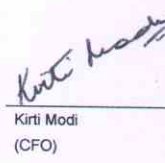 Kirti Modi
Kirti Modi
(CFO)